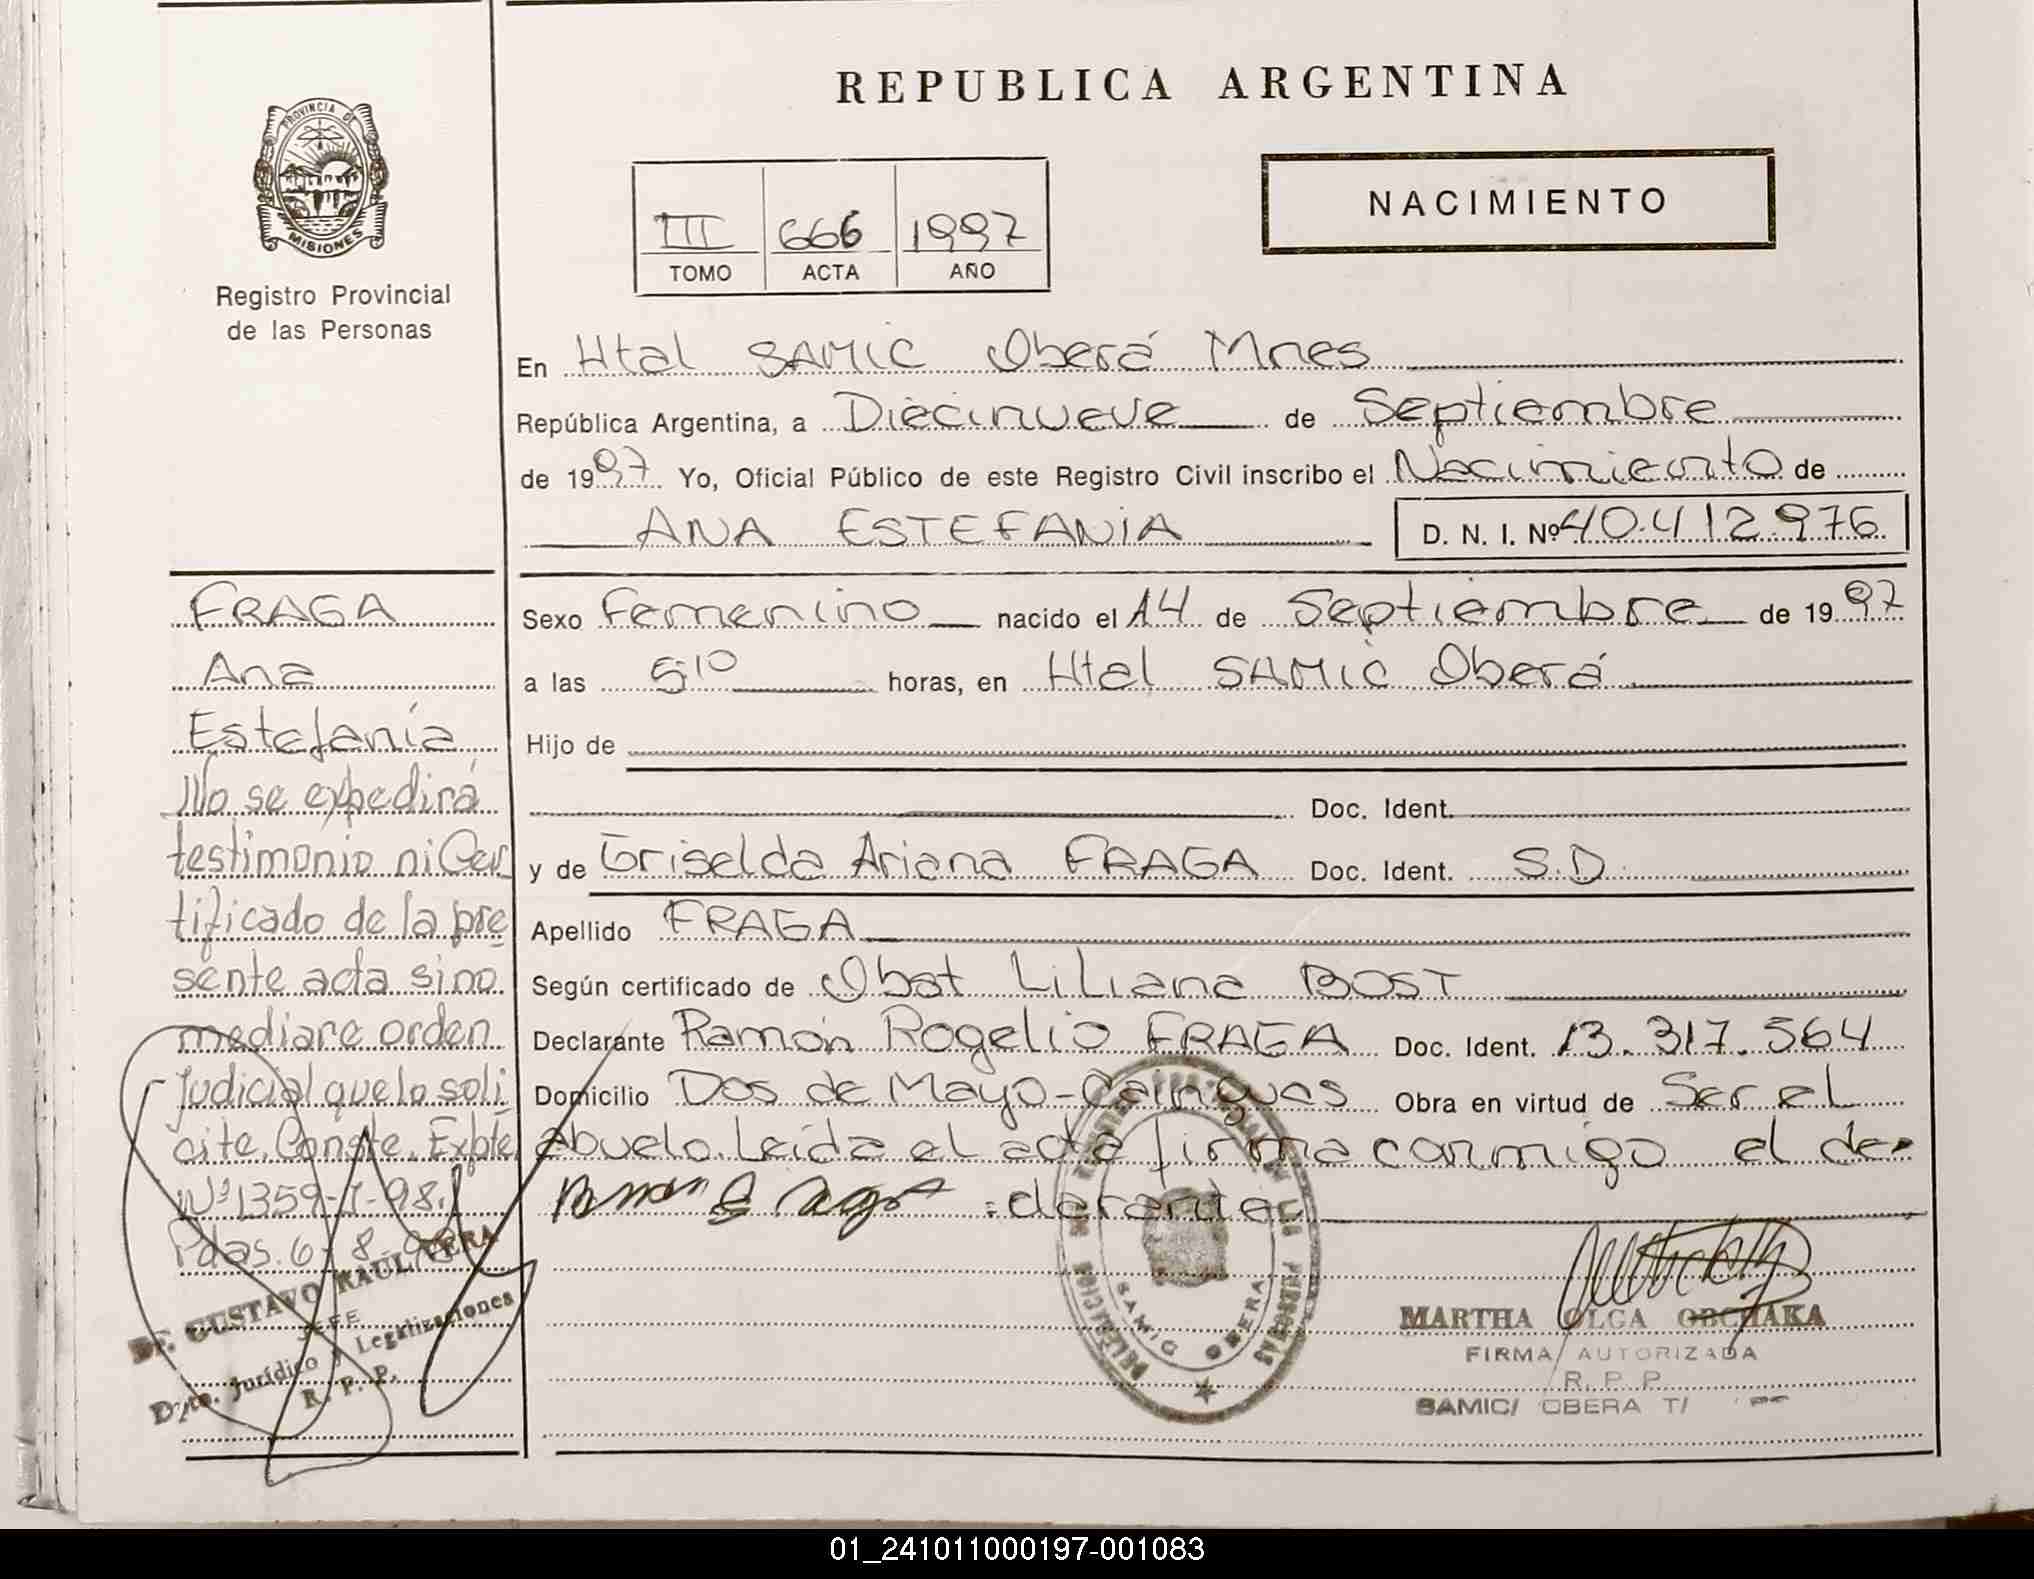 REPUBLICA ARGENTINA
PROVINCIA DE
MISIONES
Registro Provincial
de las Personas
III 666 1997
TOMO ACTA AÑO
NACIMIENTO
En Htal SAMIC Oberá Mnes
República Argentina, a Diecinueve de Septiembre
de 1997 Yo, Oficial Público de este Registro Civil inscribo el Nacimiento de
ANA ESTEFANIA D. N. I. Nº 40.412.976
Sexo Femenino nacido el 14 de Septiembre de 1997
a las 5:10 horas, en Htal SAMIC Oberá
Hijo de
Doc. Ident.
y de Griselda Ariana FRAGA Doc. Ident. S.D.
Apellido FRAGA
Según certificado de Obst Liliana BOST
Declarante Ramón Rogelio FRAGA Doc. Ident. 13.317.564
Domicilio Dos de Mayo-Cainguas Obra en virtud de Ser el
abuelo. Leída el acta firma conmigo el de-
clarante
FRAGA
Ana
Estefanía
No se expedirá
testimonio ni Cer
tificado de la pre
sente acta sino
mediare orden
Judicial que lo soli
cite. Conste. Expte
Nº 1359-7-98.
Pdas. 6-8-98
Dr. GUSTAVO RAUL VERA
JEFE
Dpto. Jurídico y Legalizaciones
R. P. P.
SAMIC OBERA
MARTHA OLGA OBCHAKA
FIRMA AUTORIZADA
R. P. P.
SAMIC/ OBERA T/
01_241011000197-001083